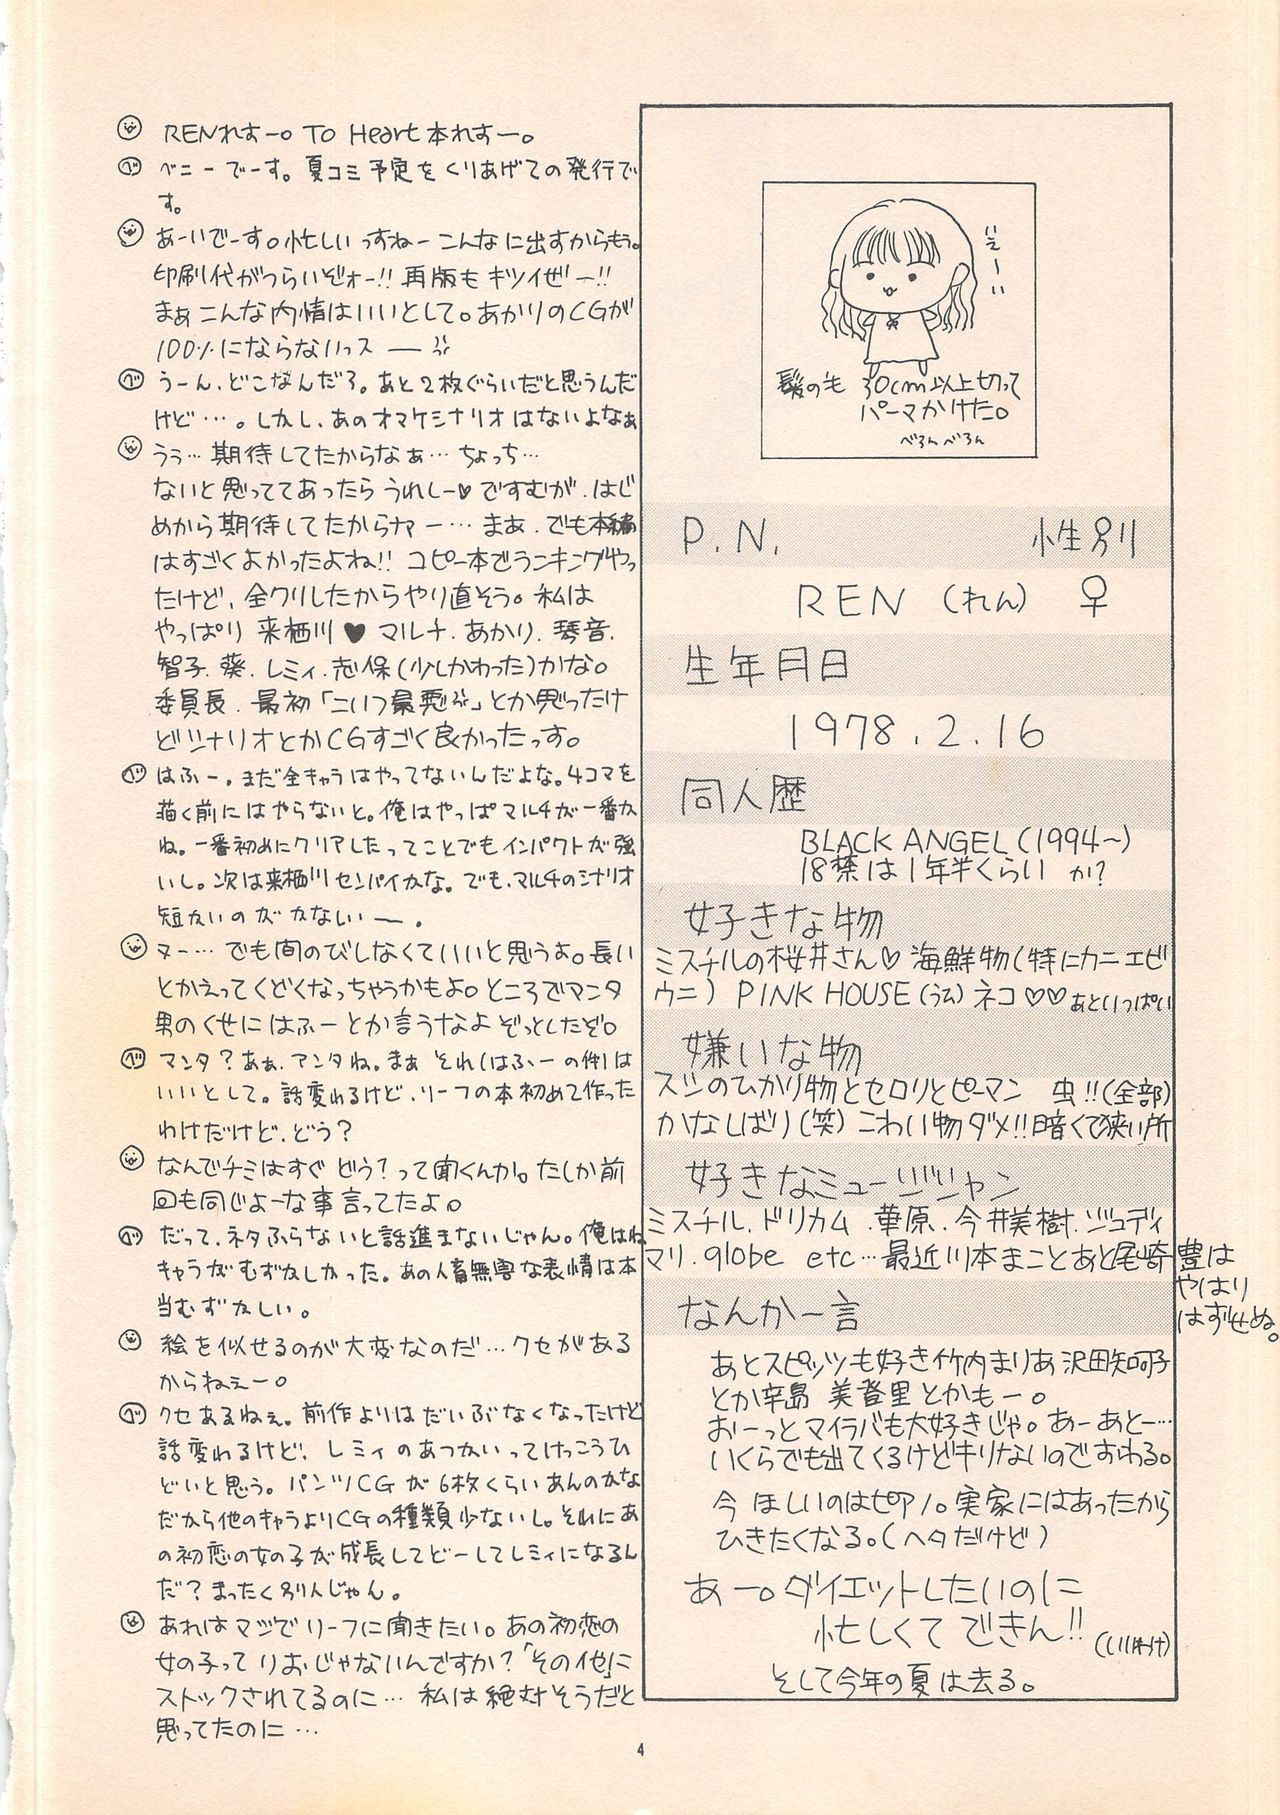 RENれすー。TO Heart本れすー。
ベ ベニーでーす。夏コミ予定をくりあげての発行で
す。
あーいでーす。忙しいっすねーこんなに出すからもう。
印刷代がつらいぞォー!! 再版もキツイぜー!!
まぁこんな内情はいいとして。あかりのCGが
100%にならないっスー
ベ うーん、どこなんだろ。あと2枚ぐらいだと思うんだ
けど…。しかし、あのオマケシナリオはないよなぁ
うぅ…期待してたからなぁ…ちょっち…
ないと思っててあったらうれしー♡ですむが、はじ
めから期待してたからナァー…まぁ、でも本編
はすごくよかったよね!! コピー本でランキングやっ
たけど、全クリしたからやり直そう。私は
やっぱり来栖川♥マルチ.あかり.琴音.
智子.葵.レミィ.志保(少しかわった)かな。
委員長.最初「こいつ最悪」とか思ったけ
どシナリオとかCGすごく良かったっす。
ベ はふー。まだ全キャラはやってないんだよな。4コマを
描く前にはやらないと。俺はやっぱマルチが一番か
ね。一番初めにクリアしたってことでもインパクトが強
いし。次は来栖川センパイかな。でも、マルチのシナリオ
短かいのがかなしい ー.
ヌー…でも間のびしなくていいと思うよ。長い
とかえってくどくなっちゃうかもよ。ところでマンタ
男のくせにはふーとか言うなよぞっとしたぞ。
ベ マンタ?あぁ、アンタね。まぁ それ(はふーの件)は
いいとして。話変わるけど、リーフの本初めて作った
わけだけど、どう?
なんでチミはすぐどう?って聞くんか。たしか前
回も同じよーな事言ってたよ。
ベ だって、ネタふらないと話進まないじゃん。俺はね
キャラがむずかしかった。あの人畜無害な表情は本
当むずかしい。
絵を似せるのが大変なのだ…クセがある
からねぇー。
ベ クセあるねぇ。前作よりはだいぶなくなったけど
話変わるけど、レミィのあつかいってけっこうひ
どいと思う。パンツCGが6枚くらいあんのかな
だから他のキャラよりCGの種類少ないし。それにあ
の初恋の女の子が成長してどーしてレミィになるん
だ?まったく別人じゃん。
あれはマジでリーフに聞きたい。あの初恋の
女の子ってりおじゃないんですか?「その他」に
ストックされてるのに…私は絶対そうだと
思ってたのに…
いえーい
髪の毛 30cm以上切って
パーマかけた。
べろんべろん
P.N. 性別
REN (れん) ♀
生年月日
1978.2.16
同人歴
BLACK ANGEL(1994〜)
18禁は1年半くらいか?
好きな物
ミスチルの桜井さん♡海鮮物(特にカニエビ
ウニ) PINK HOUSE(うム)ネコ♡♡あといっぱい
嫌いな物
スシのひかり物とセロリとピーマン 虫!!(全部)
かなしばり(笑)こわい物ダメ!!暗くて狭い所
好きなミュージジャン
ミスチル.ドリカム.華原.今井美樹.ジュディ
マリ.globe etc…最近川本まことあと尾崎豊は
やはり
はずせぬ。
なんか一言
あとスピッツも好き竹内まりあ沢田知可子
とか辛島 美登里とかもー。
おーっとマイラバも大好きじゃ。あーあとー…
いくらでも出てくるけどキリないのでおわる。
今ほしいのはピアノ。実家にはあったから
ひきたくなる。(ヘタだけど)
あー。ダイエットしたいのに
忙しくてできん!!(いいわけ)
そして今年の夏は去る。
4